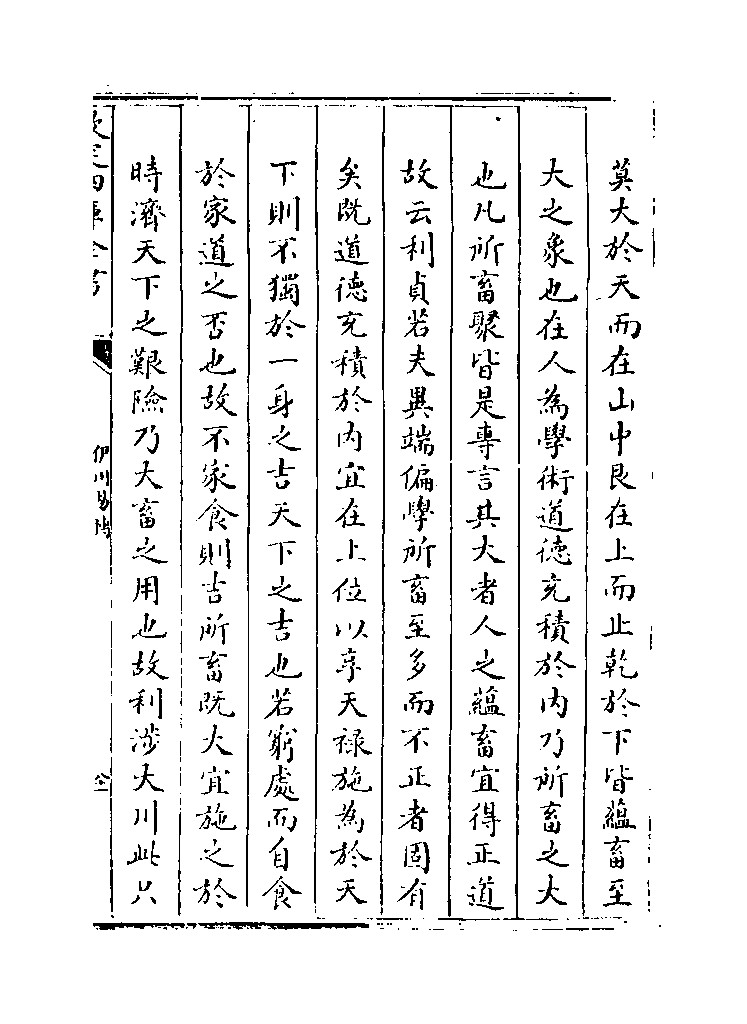 莫大於天而在山中艮在上而止乾於下皆蘊畜至
大之象也在人為學術道德充積於内乃所畜之大
也凡所畜聚皆是專言其大者人之蘊畜宜得正道
故云利貞若夫異端偏學所畜至多而不正者固有
矣既道德充積於内宜在上位以享天禄施為於天
下則不獨於一身之吉天下之吉也若窮處而自食
於家道之否也故不家食則吉所畜既大宜施之於
時濟天下之艱險乃大畜之用也故利涉大川此只
欽定四庫全書
伊川易傳